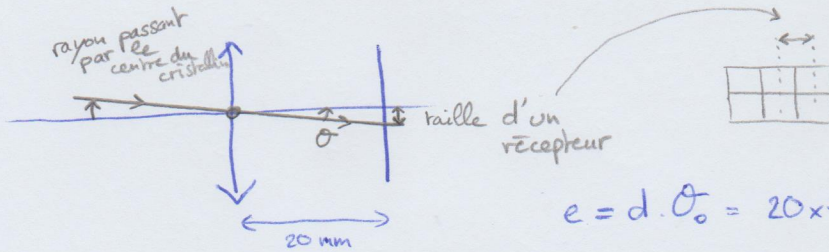 rayon passant
par le
centre du
cristallin
θ
taille d'un
récepteur
20 mm
e = d . θ₀ = 20 x